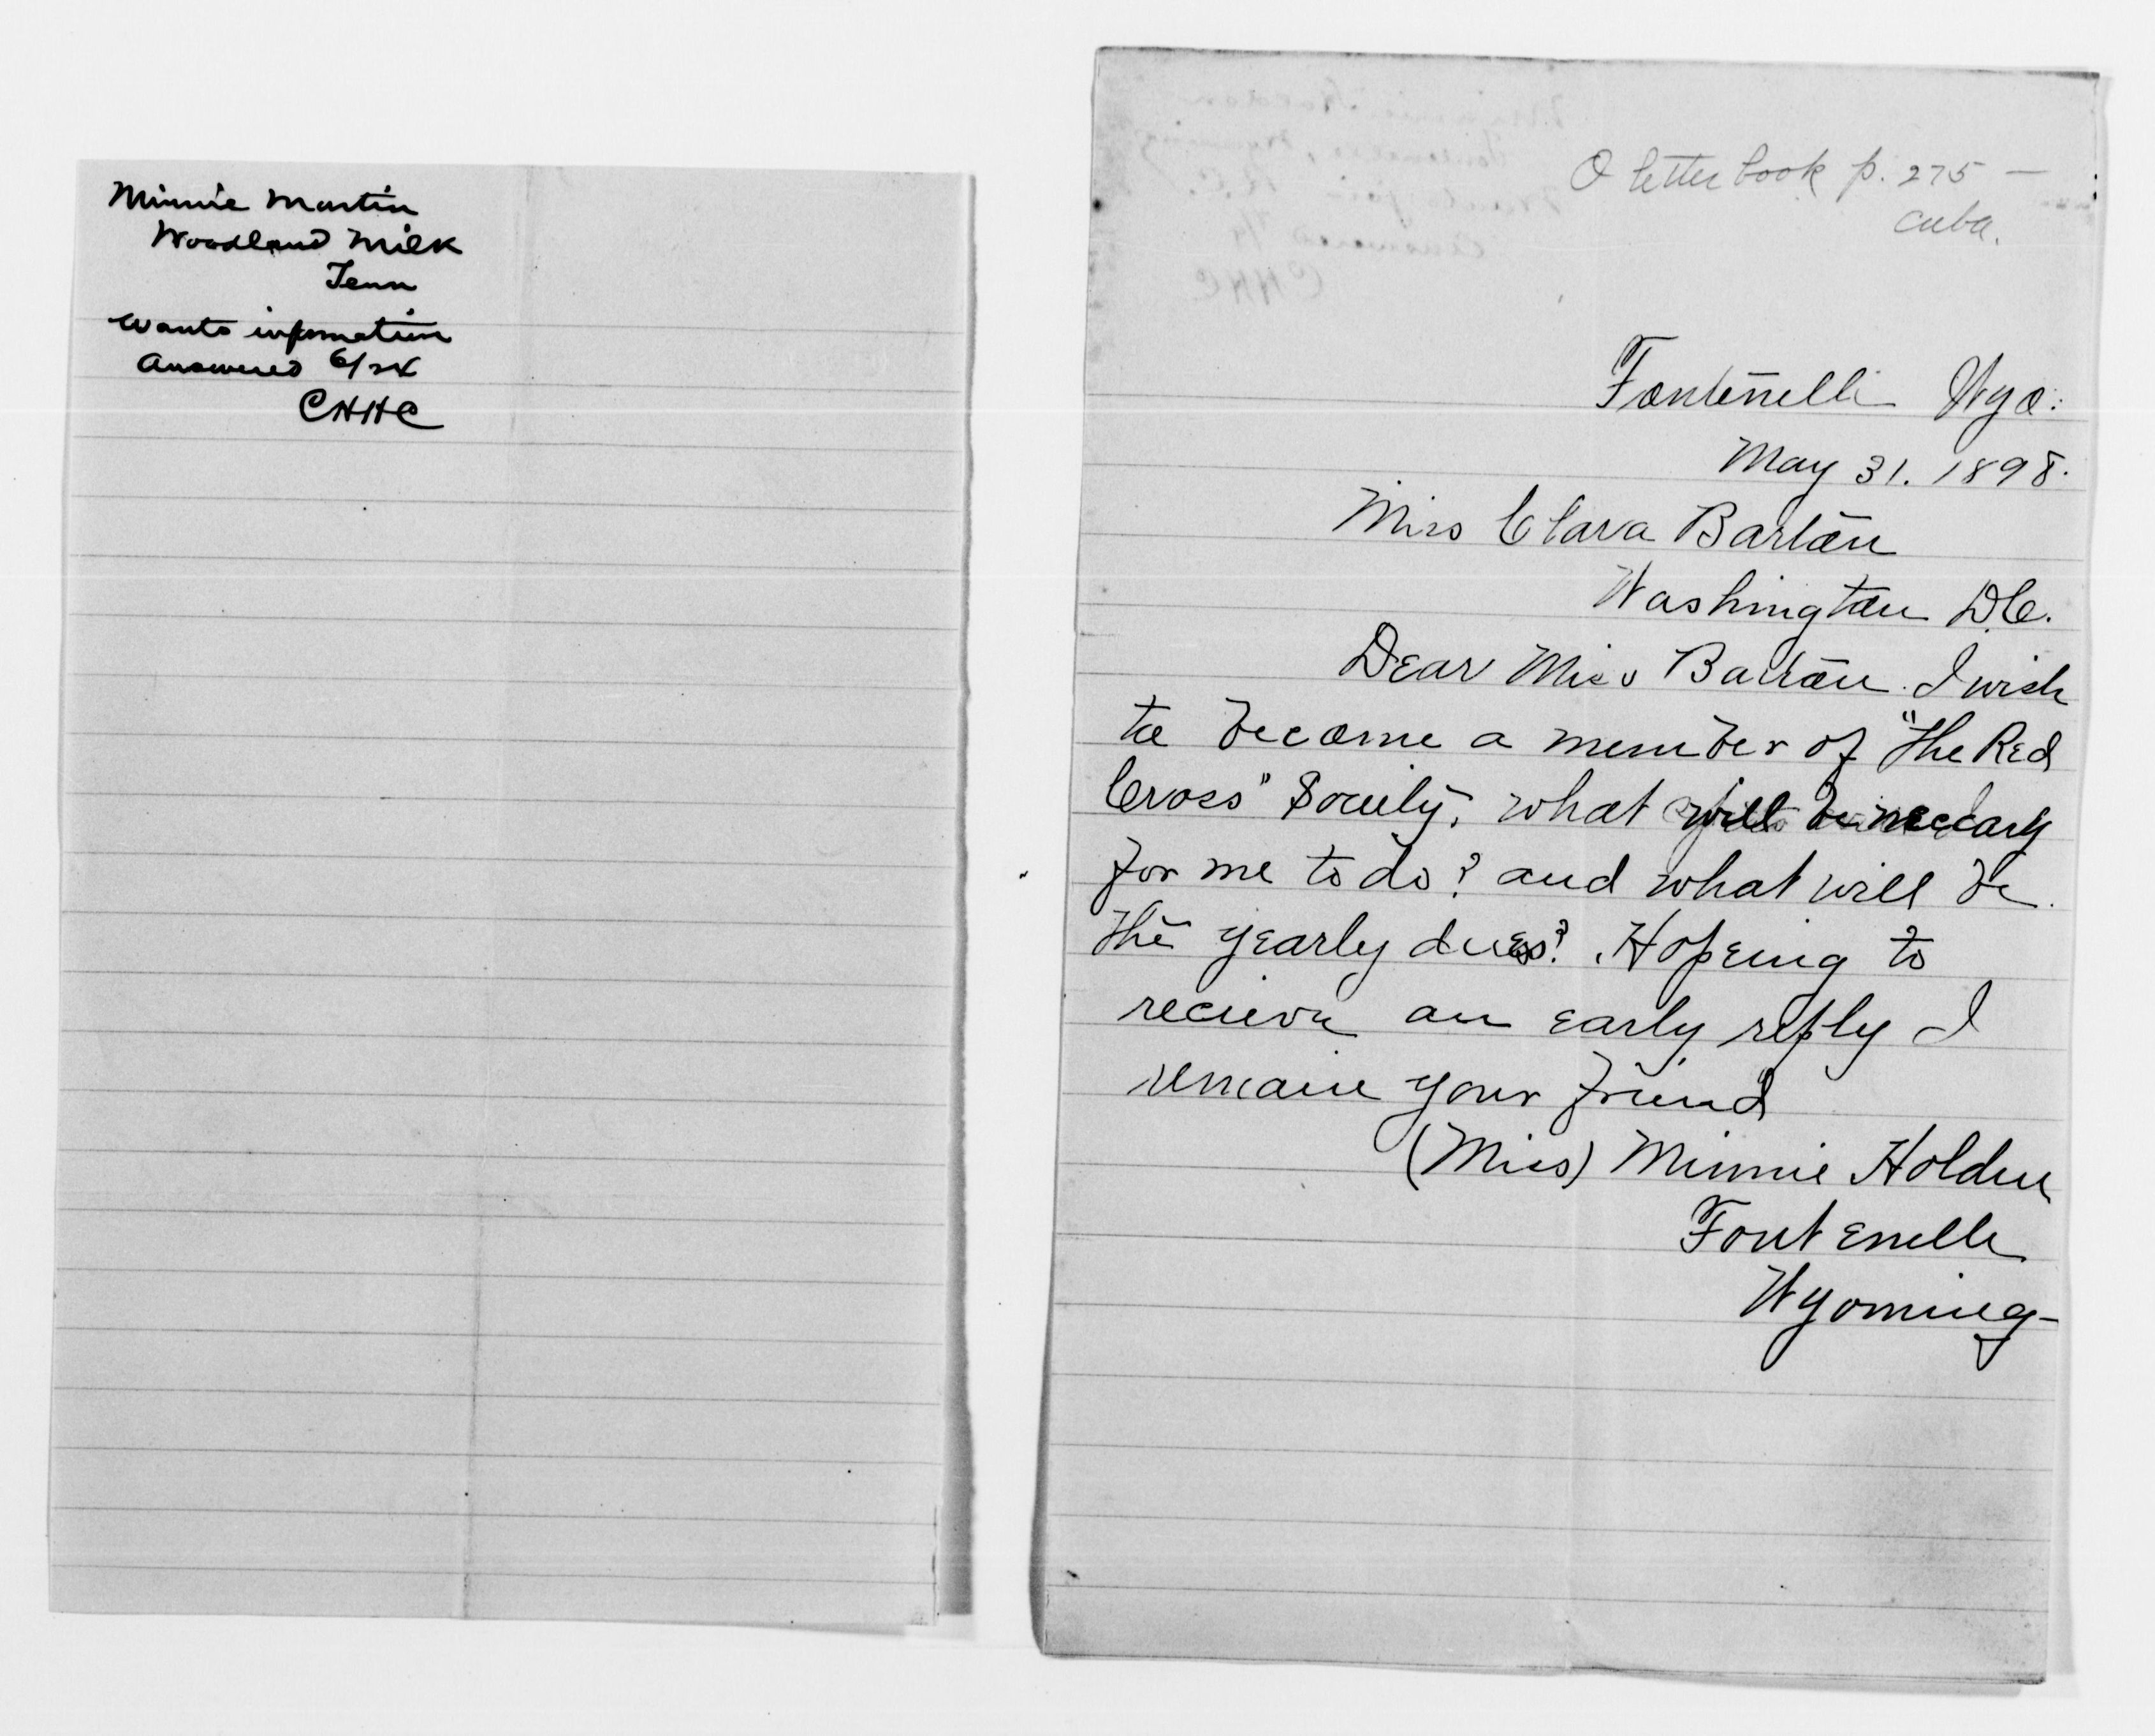 Minnie Martin
Woodland Milk
Tenn
Wants information
Answered 6/24
CHHC
O letter book p. 275 —
Cuba.
Fontenelle Wyo:
May 31. 1898.
Miss Clara Barton
Washington D.C.
Dear Miss Barton. I wish
to become a member of "The Red
Cross" Society, what will be neccary
for me to do? and what will be
the yearly dues? Hopeing to
recieve an early reply I
remain your friend
(Miss) Minnie Holden
Fontenelle
Wyoming-